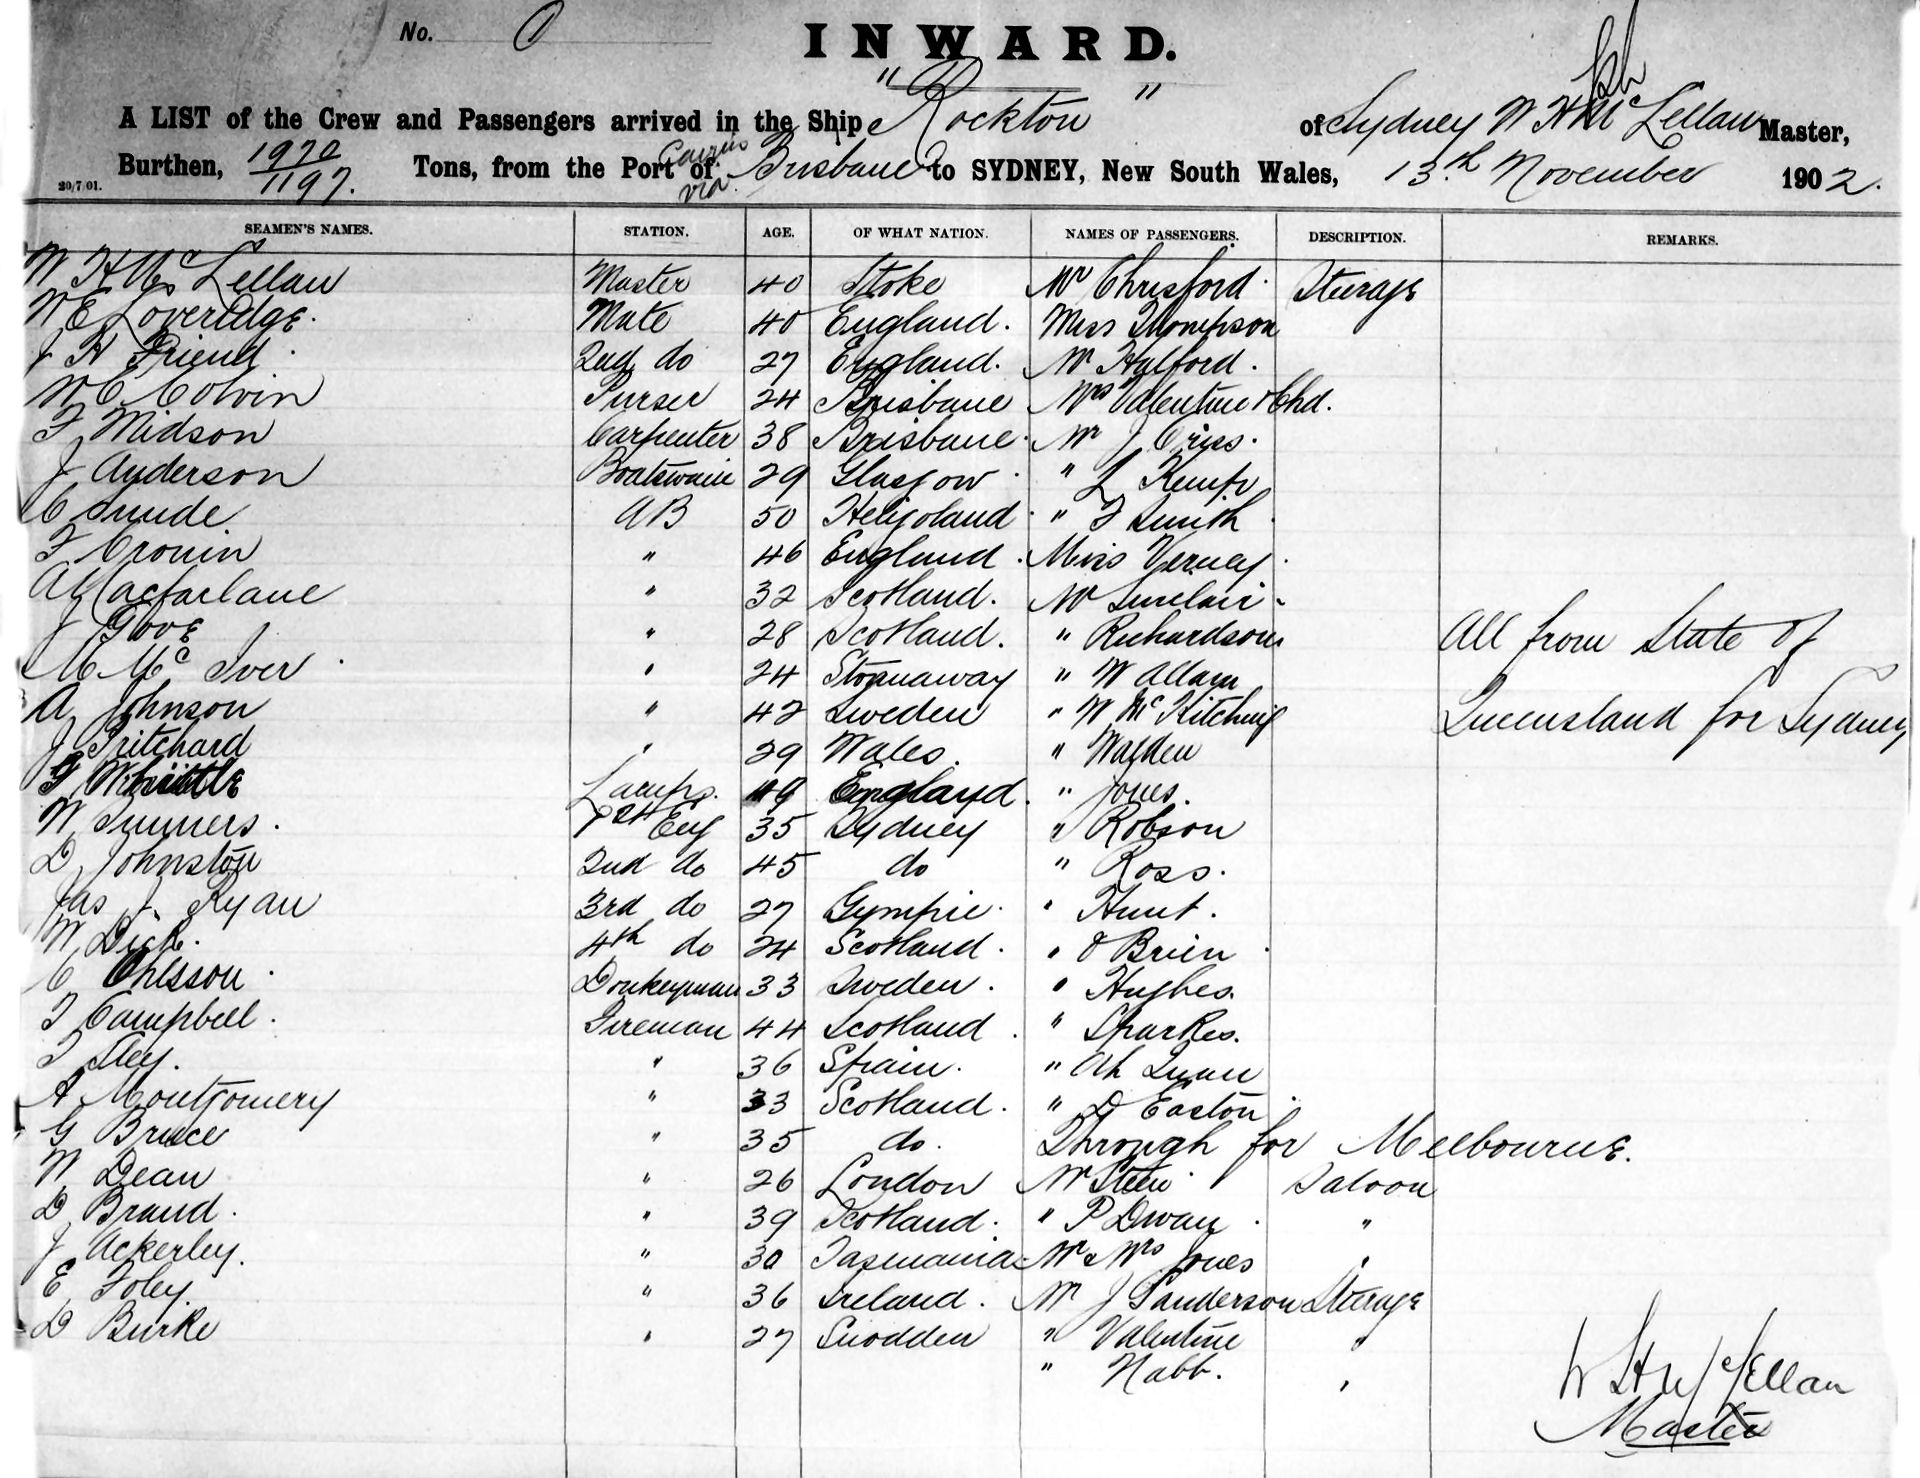 No. 1
INWARD.
A LIST of the Crew and Passengers arrived in the Ship "Rockton" of Sydney W H McLellan Master,
Burthen, 1970/1197. Tons, from the Port of Cairns via Brisbane to SYDNEY, New South Wales, 13th November 1902.
20/7/01.
SEAMEN'S NAMES. STATION. AGE. OF WHAT NATION. NAMES OF PASSENGERS. DESCRIPTION. REMARKS.
W H McLellan Master 40 Stoke Mr Chrisford Sturage
W E Loveridge. Mate 40 England. Miss Thompson
J H Friend 2nd do 27 England. Mr Halford.
W C Colvin Purser 24 Brisbane Mrs Valentine & Chd.
F Midson Carpenter 38 Brisbane Mr J Criss.
J Anderson Boatswain 29 Glasgow " L Kemp
C AB 50 Heligoland " F Smith
F Cronin " 46 England. Miss Verney
A Macfarlane " 32 Scotland. Mr Sinclair.
J Gove " 28 Scotland. " Richardson All from State of
M Mc Iver " 24 Stornaway " W Allam
A Johnson " 42 Sweden " W Mc Kitchnig Queensland for Sydney
J Pritchard " 29 Wales. " Walden
Whittle Lamps. 19 England. " Jones.
W Summers. 1st Eng 35 Sydney " Robson
D Johnston 2nd do 45 do " Ross.
Jas J. Ryan 3rd do 27 Gympie. " Hunt.
W Dick. 4th do 24 Scotland. " O Brien
C Ohlsson. Donkeyman 33 Sweden. " Hughes.
T Campbell. Fireman 44 Scotland. " Sparkes.
" 36 Spain. " Ah
A Montgomery " 33 Scotland. " D Easton
G Bruce " 35 do. Through for Melbourne.
W Dean " 26 London Mr Stein Saloon
D Brand. " 39 Scotland. " P Dwan "
J Ackerley. " 30 Tasmania Mr & Mrs Jones "
E Foley. " 36 Ireland. Mr J Sanderson Sturage
D Burke " 27 Snodden " Valentine "
" Nabb. "
W H McLellan
Master